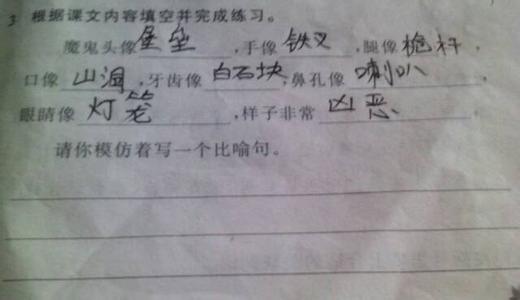 3 根据课文内容填空并完成练习。
魔鬼头像堡垒,手像铁叉,腿像桅杆,
口像山洞,牙齿像白石块,鼻孔像喇叭,
眼睛像灯笼,样子非常凶恶。
请你模仿着写一个比喻句。